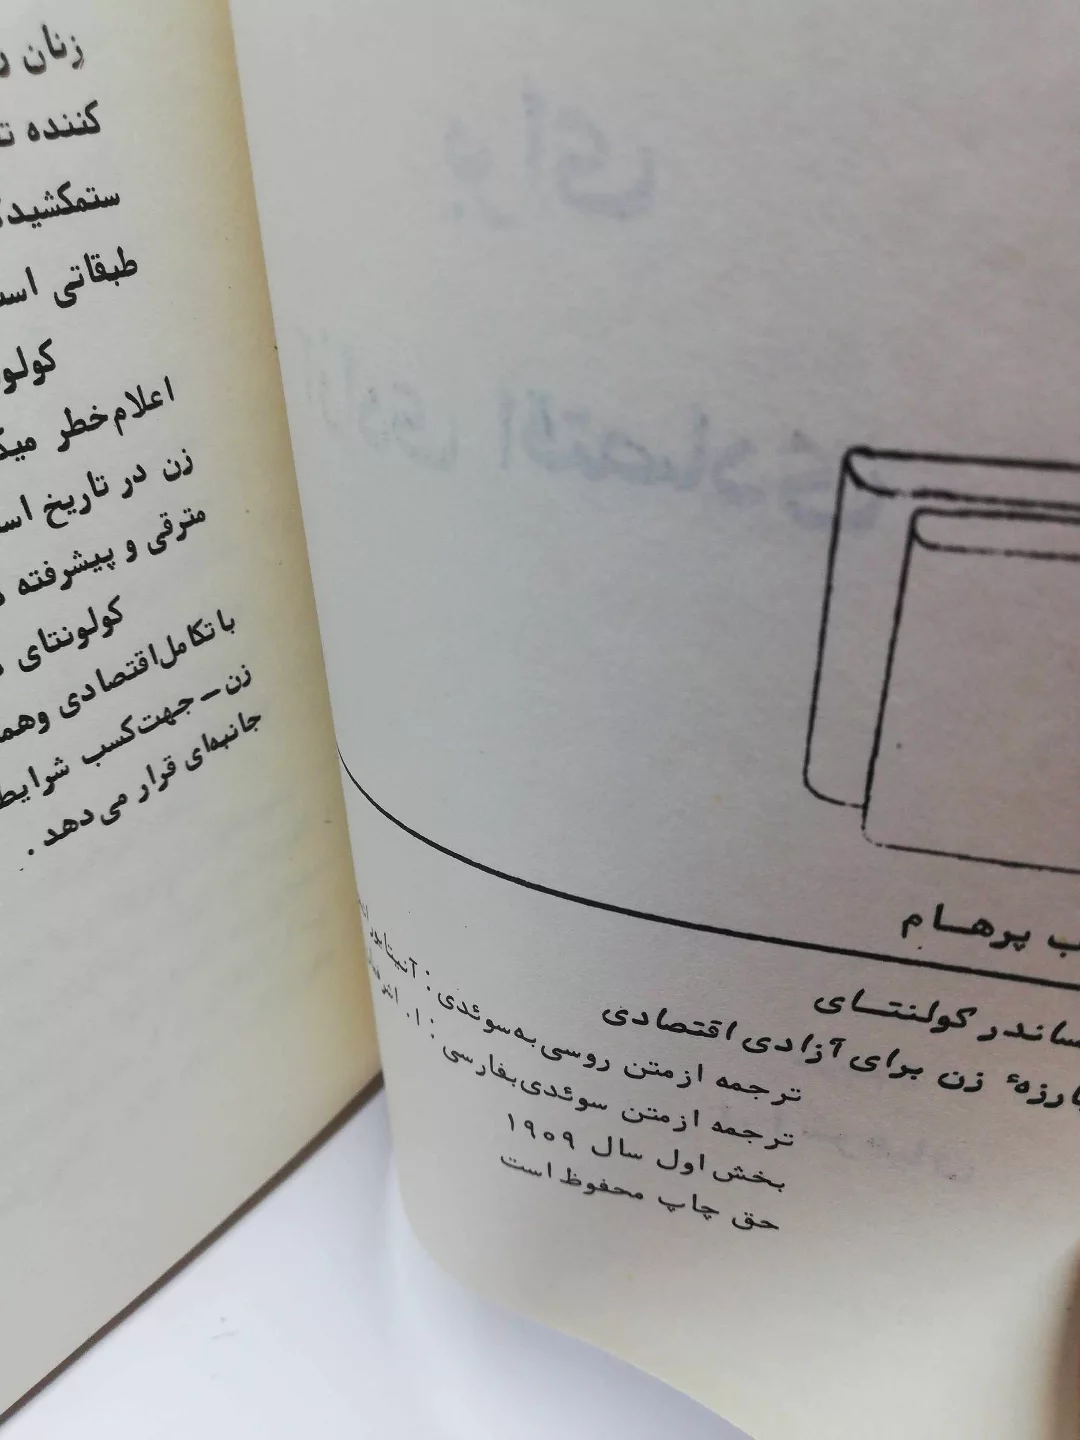 زنان
کننده
ستمکشید
طبقاتی
کولو
اعلام خطر
زن در تاریخ
مترقی و پیشرفته
کولونتای
با تکامل اقتصادی وهم
زن ــ جهت کسب شرایط
جانبه‌ای قرار می‌دهد .
برای
آزادی اقتصادی
ب پرهــام
ساندر کولنتــای
بارزهٔ زن برای آزادی اقتصادی
ترجمه از متن روسی به سوئدی :
ترجمه از متن سوئدی بفارسی : ا.
بخش اول سال ۱۹۰۹
حق چاپ محفوظ است